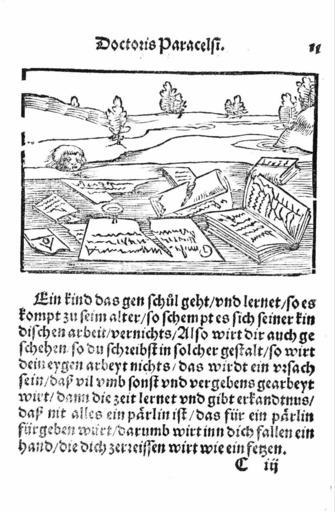 Doctoris Paracelsi. 11
Ein kind das gen schůl geht/vnd lernet/so es
kompt zu seim alter/so schempt es sich seiner kin
dischen arbeit/vernichts/Also wirt dir auch ge
schehen so du schreibst in solcher gestalt/so wirt
dein eygen arbeyt nichts/das wirdt ein vrsach
sein/daß vil vmb sonst vnd vergebens gearbeyt
wirt/dann die zeit lernet vnd gibt erkandtnus/
daß nit alles ein pärlin ist/das für ein pärlin
fürgeben würt/darumb wirt inn dich fallen ein
hand/die dich zerreissen wirt wie ein fetzen.
C iij